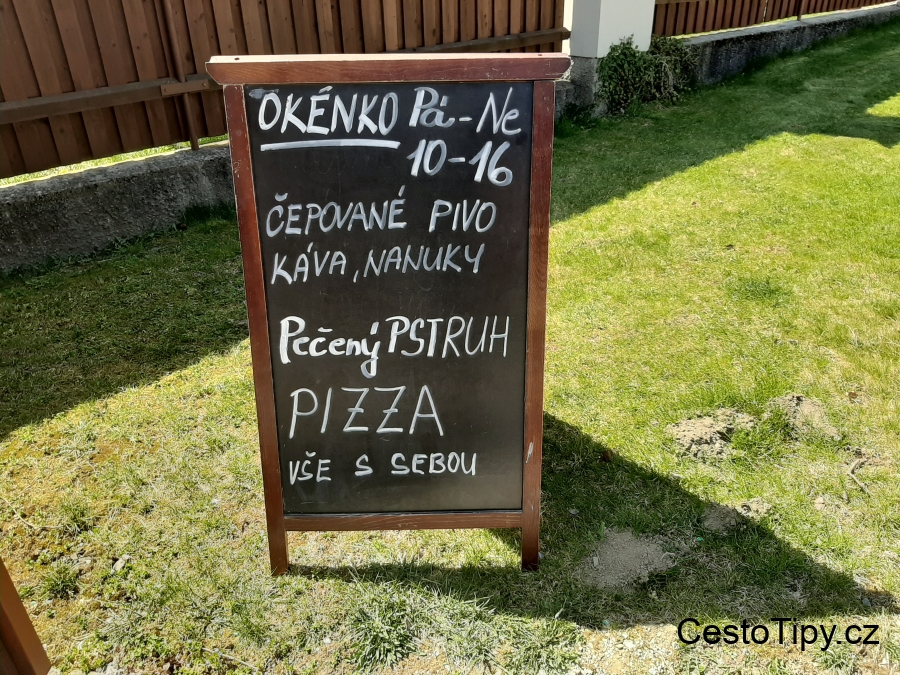 OKÉNKO Pá-Ne
10-16
ČEPOVANÉ PIVO
KÁVA, NANUKY
Pečený PSTRUH
PIZZA
VŠE S SEBOU
CestoTipy.cz